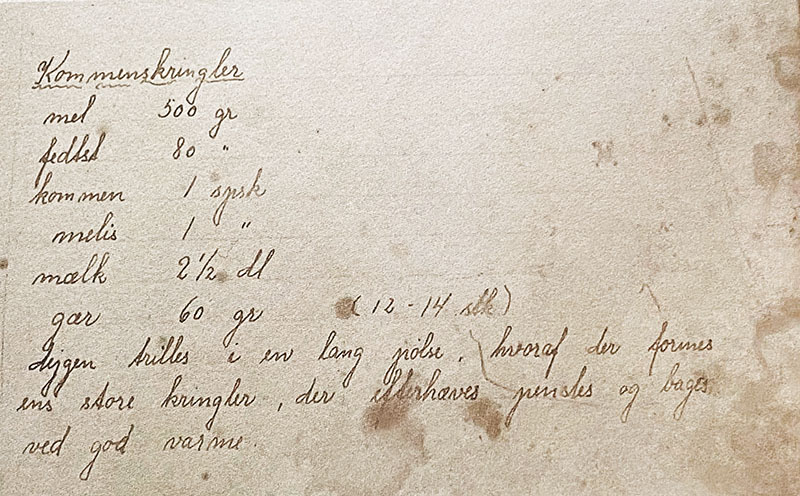 Kommenskringler
mel 500 gr
fedtst 80 "
kommen 1 spsk
melis 1 "
mælk 2 1/2 dl
gær 60 gr (12-14 stk)
dejgen trilles i en lang pölse, hvoraf der formes
ens store kringler, der efterhæves pensles og bages
ved god varme.